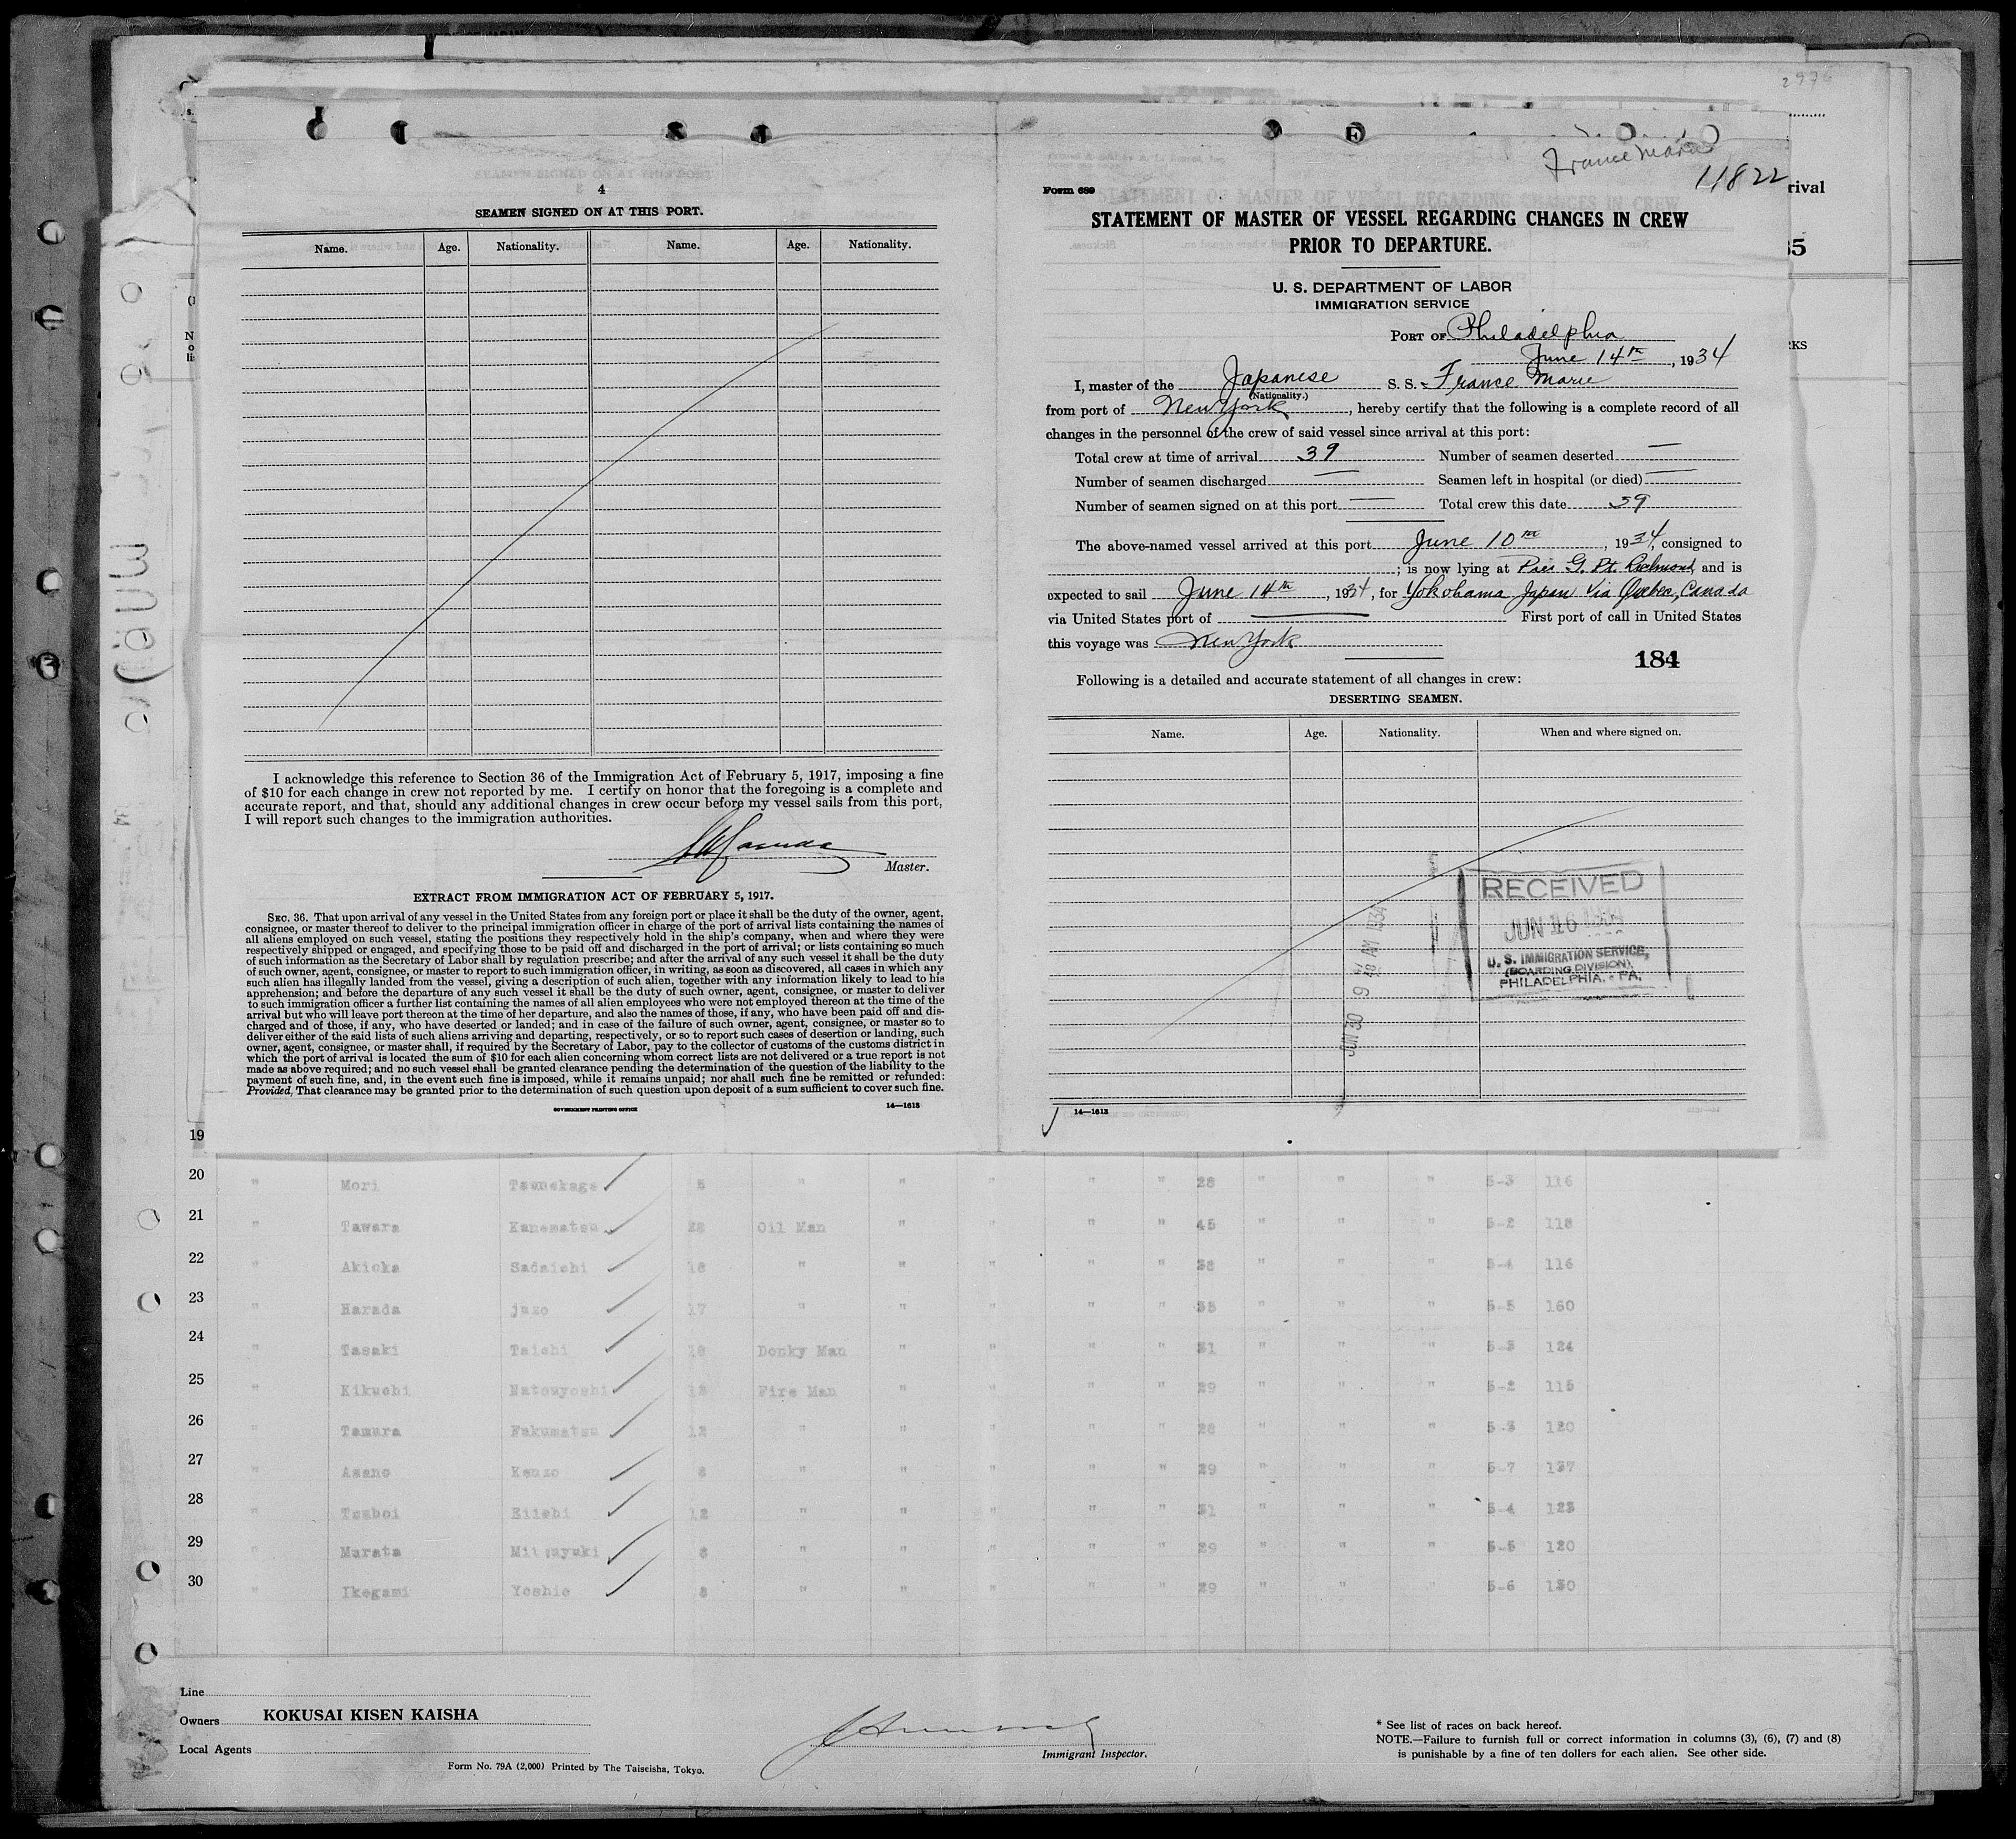 2976
France Marie
11822
rival
35
RKS
4
SEAMEN SIGNED ON AT THIS PORT.
Name. Age. Nationality. Name. Age. Nationality.
I acknowledge this reference to Section 36 of the Immigration Act of February 5, 1917, imposing a fine
of $10 for each change in crew not reported by me. I certify on honor that the foregoing is a complete and
accurate report, and that, should any additional changes in crew occur before my vessel sails from this port,
I will report such changes to the immigration authorities.
Master.
EXTRACT FROM IMMIGRATION ACT OF FEBRUARY 5, 1917.
SEC. 36. That upon arrival of any vessel in the United States from any foreign port or place it shall be the duty of the owner, agent,
consignee, or master thereof to deliver to the principal immigration officer in charge of the port of arrival lists containing the names of
all aliens employed on such vessel, stating the positions they respectively hold in the ship's company, when and where they were
respectively shipped or engaged, and specifying those to be paid off and discharged in the port of arrival; or lists containing so much
of such information as the Secretary of Labor shall by regulation prescribe; and after the arrival of any such vessel it shall be the duty
of such owner, agent, consignee, or master to report to such immigration officer, in writing, as soon as discovered, all cases in which any
such alien has illegally landed from the vessel, giving a description of such alien, together with any information likely to lead to his
apprehension; and before the departure of any such vessel it shall be the duty of such owner, agent, consignee, or master to deliver
to such immigration officer a further list containing the names of all alien employees who were not employed thereon at the time of the
arrival but who will leave port thereon at the time of her departure, and also the names of those, if any, who have been paid off and dis-
charged and of those, if any, who have deserted or landed; and in case of the failure of such owner, agent, consignee, or master so to
deliver either of the said lists of such aliens arriving and departing, respectively, or so to report such cases of desertion or landing, such
owner, agent, consignee, or master shall, if required by the Secretary of Labor, pay to the collector of customs of the customs district in
which the port of arrival is located the sum of $10 for each alien concerning whom correct lists are not delivered or a true report is not
made as above required; and no such vessel shall be granted clearance pending the determination of the question of the liability to the
payment of such fine, and, in the event such fine is imposed, while it remains unpaid; nor shall such fine be remitted or refunded:
Provided, That clearance may be granted prior to the determination of such question upon deposit of a sum sufficient to cover such fine.
GOVERNMENT PRINTING OFFICE 14—1613
Form 689
STATEMENT OF MASTER OF VESSEL REGARDING CHANGES IN CREW
PRIOR TO DEPARTURE.
U. S. DEPARTMENT OF LABOR
IMMIGRATION SERVICE
PORT OF Philadelphia
June 14th, 1934
I, master of the Japanese S. S. France Marie
(Nationality.)
from port of New York, hereby certify that the following is a complete record of all
changes in the personnel of the crew of said vessel since arrival at this port:
Total crew at time of arrival 39 Number of seamen deserted —
Number of seamen discharged — Seamen left in hospital (or died) —
Number of seamen signed on at this port — Total crew this date 39
The above-named vessel arrived at this port June 10th, 1934, consigned to
; is now lying at Pier G. Pt. Richmond, and is
expected to sail June 14th, 1934, for Yokohama Japan via Quebec, Canada
via United States port of — First port of call in United States
this voyage was New York
184
Following is a detailed and accurate statement of all changes in crew:
DESERTING SEAMEN.
Name. Age. Nationality. When and where signed on.
RECEIVED
JUN 16 1934
U. S. IMMIGRATION SERVICE,
(BOARDING DIVISION)
PHILADELPHIA. - PA.
JUN 30 9 28 AM 1934
14—1613
19
20 " Mori Tsunekage 5 " " " " " 28 " " " 5-3 116
21 " Tawara Kanematsu 28 Oil Man " " " " 45 " " " 5-2 118
22 " Akioka Sadaichi 18 " " " " " 38 " " " 5-4 116
23 " Harada juzo 17 " " " " " 35 " " " 5-5 160
24 " Tasaki Taichi 18 Donky Man " " " " 31 " " " 5-3 124
25 " Kikuchi Natsuyoshi 12 Fire Man " " " " 29 " " " 5-2 115
26 " Tamura Fukumatsu 12 " " " " " 28 " " " 5-3 120
27 " Asano Kenzo 8 " " " " " 29 " " " 5-7 137
28 " Tsuboi Eiichi 12 " " " " " 31 " " " 5-4 123
29 " Murata Mitsuyuki 8 " " " " " 29 " " " 5-5 120
30 " Ikegami Yoshio 8 " " " " " 29 " " " 5-6 130
Line
Owners KOKUSAI KISEN KAISHA
Local Agents
Form No. 79A (2,000) Printed by The Taiseisha, Tokyo.
Immigrant Inspector.
* See list of races on back hereof.
NOTE.—Failure to furnish full or correct information in columns (3), (6), (7) and (8)
is punishable by a fine of ten dollars for each alien. See other side.